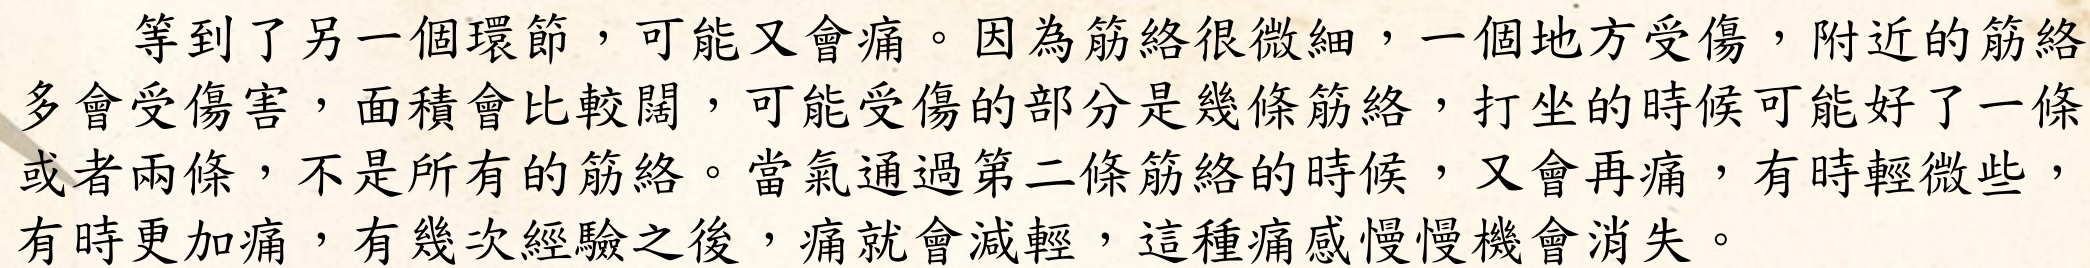 等到了另一個環節，可能又會痛。因為筋絡很微細，一個地方受傷，附近的筋絡
多會受傷害，面積會比較闊，可能受傷的部分是幾條筋絡，打坐的時候可能好了一條
或者兩條，不是所有的筋絡。當氣通過第二條筋絡的時候，又會再痛，有時輕微些，
有時更加痛，有幾次經驗之後，痛就會減輕，這種痛感慢慢機會消失。